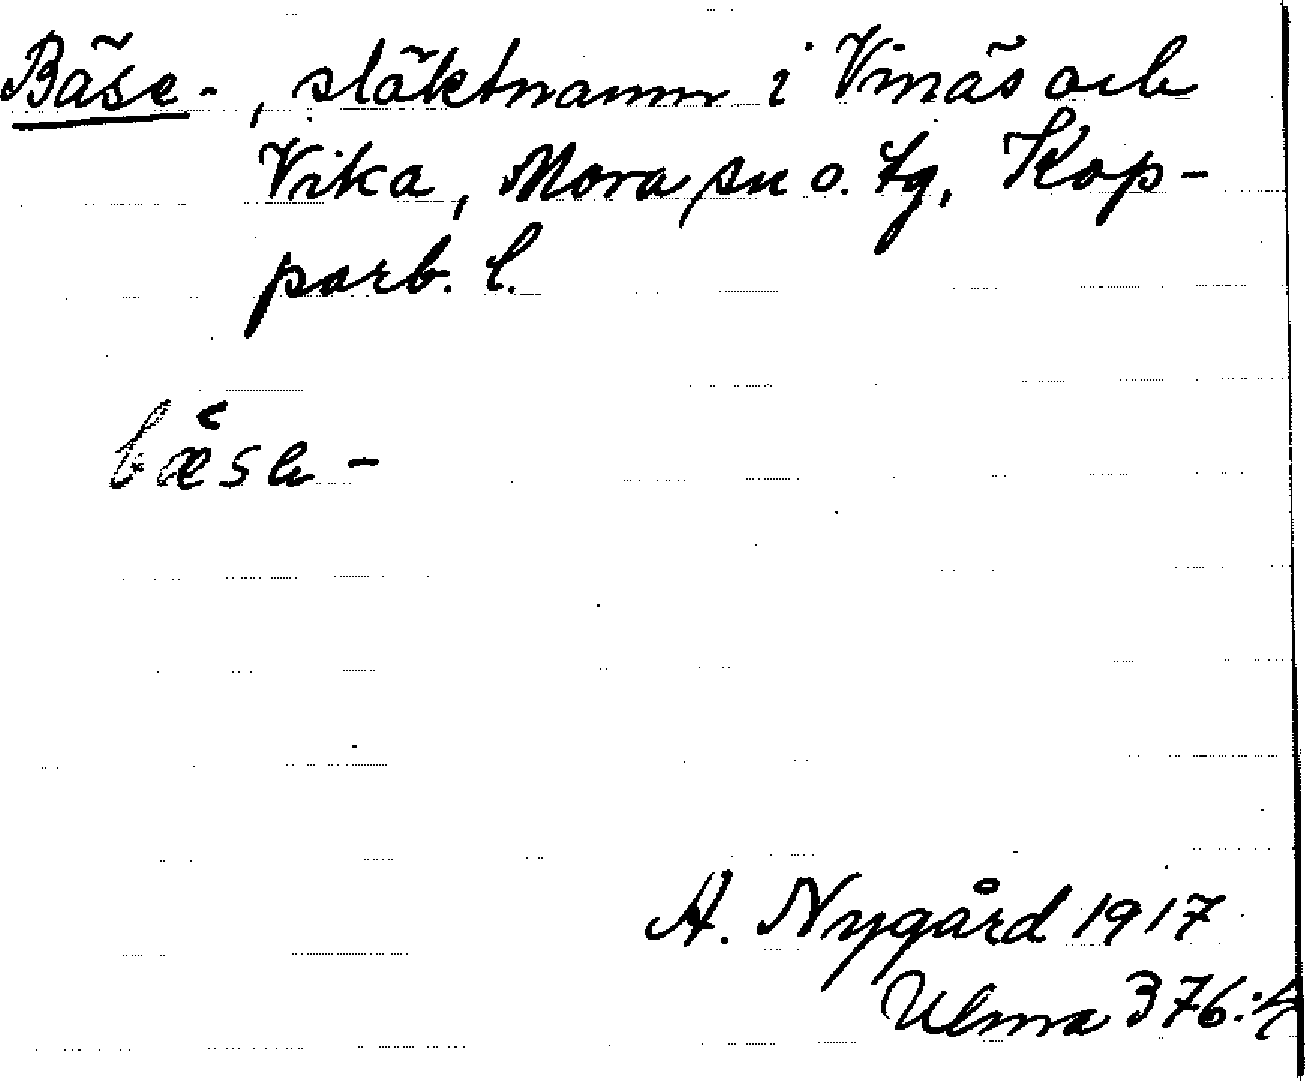 Bäse-, släktnamn i Vinäs och
Vika, Mora sn o. tg, Kop-
parb. l.
bæse-
A. Nygård 1917
Ulma 376:4